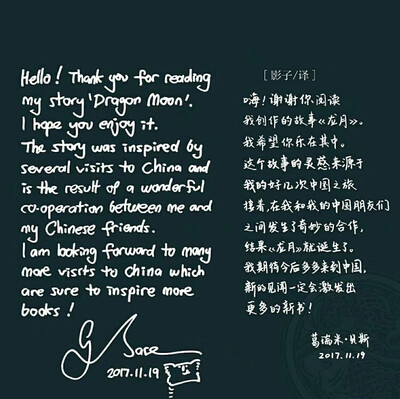 Hello! Thank you for reading
my story 'Dragon Moon'.
I hope you enjoy it.
The story was inspired by
several visits to China and
is the result of a wonderful
co-operation between me and
my Chinese friends.
I am looking forward to many
more visits to China which
are sure to inspire more
books!
G Base
2017.11.19
[影子/译]
嗨!谢谢你阅读
我创作的故事《龙月》。
我希望你乐在其中。
这个故事的灵感来源于
我的好几次中国之旅
接着,在我和我的中国朋友们
之间发生了奇妙的合作,
结果《龙月》就诞生了。
我期待今后多多来到中国,
新的见闻一定会激发出
更多的新书!
葛瑞米·贝斯
2017.11.19